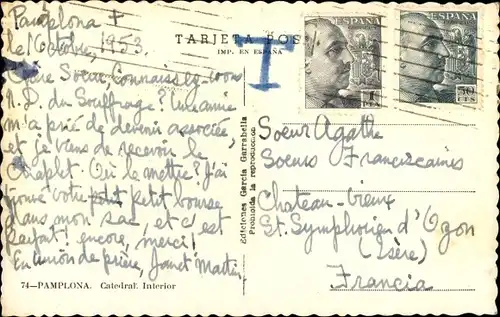 Pamplona +
le 1 Octobre, 1953.
TARJETA POS
IMP. EN ESPAÑA
T
ESPAÑA
1 PTA
ESPAÑA
50 CTS
Chère Soeur, Connaissez-vous
N.D. du Suffrage? Une amie
m'a prié de devenir associée,
et je viens de recevoir le
chaplet. Où le mettre? J'ai
trouvé votre petit petit bourse
dans mon sac, et c'est
parfait! encore, merci!
En union de prière, Janet Martin
Ediciones García Garrabella
Prohibida la reproducción
Soeur Agathe
Soeurs Franciscaines
Chateau-Vieux
St. Symphorien d'Ozon
(Isère)
Francia
74—PAMPLONA. Catedral: Interior